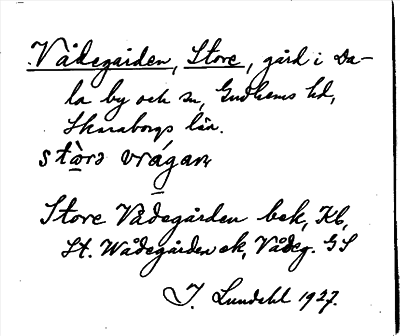 Vådegården, Store, gård i Da-
la by och sn, Gudhems hd,
Skaraborgs län.
Store Vådegården bek, Kb,
St. Wådegården ek, Vådeg. GS
I. Lundahl 1927.